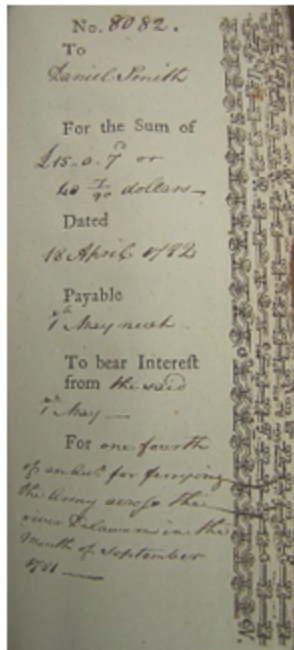 No. 8082.
To
Daniel Smith
For the Sum of
£15.0.7 or
40 7/90 dollars
Dated
18 April 1782
Payable
1st May next
To bear Interest
from the said
1st May
For one fourth
of an Acct. for ferrying
the Army across the
river Delaware in the
Month of September
1781